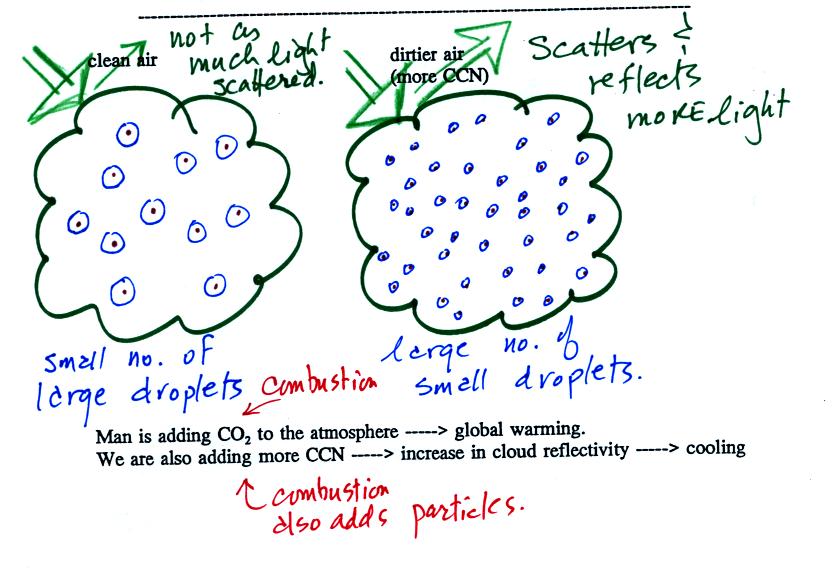 clean air
not as
much light
scattered.
dirtier air
(more CCN)
Scatters &
reflects
more light
small no. of
large droplets
large no. of
small droplets.
combustion
Man is adding CO₂ to the atmosphere -----> global warming.
We are also adding more CCN -----> increase in cloud reflectivity -----> cooling
combustion
also adds particles.